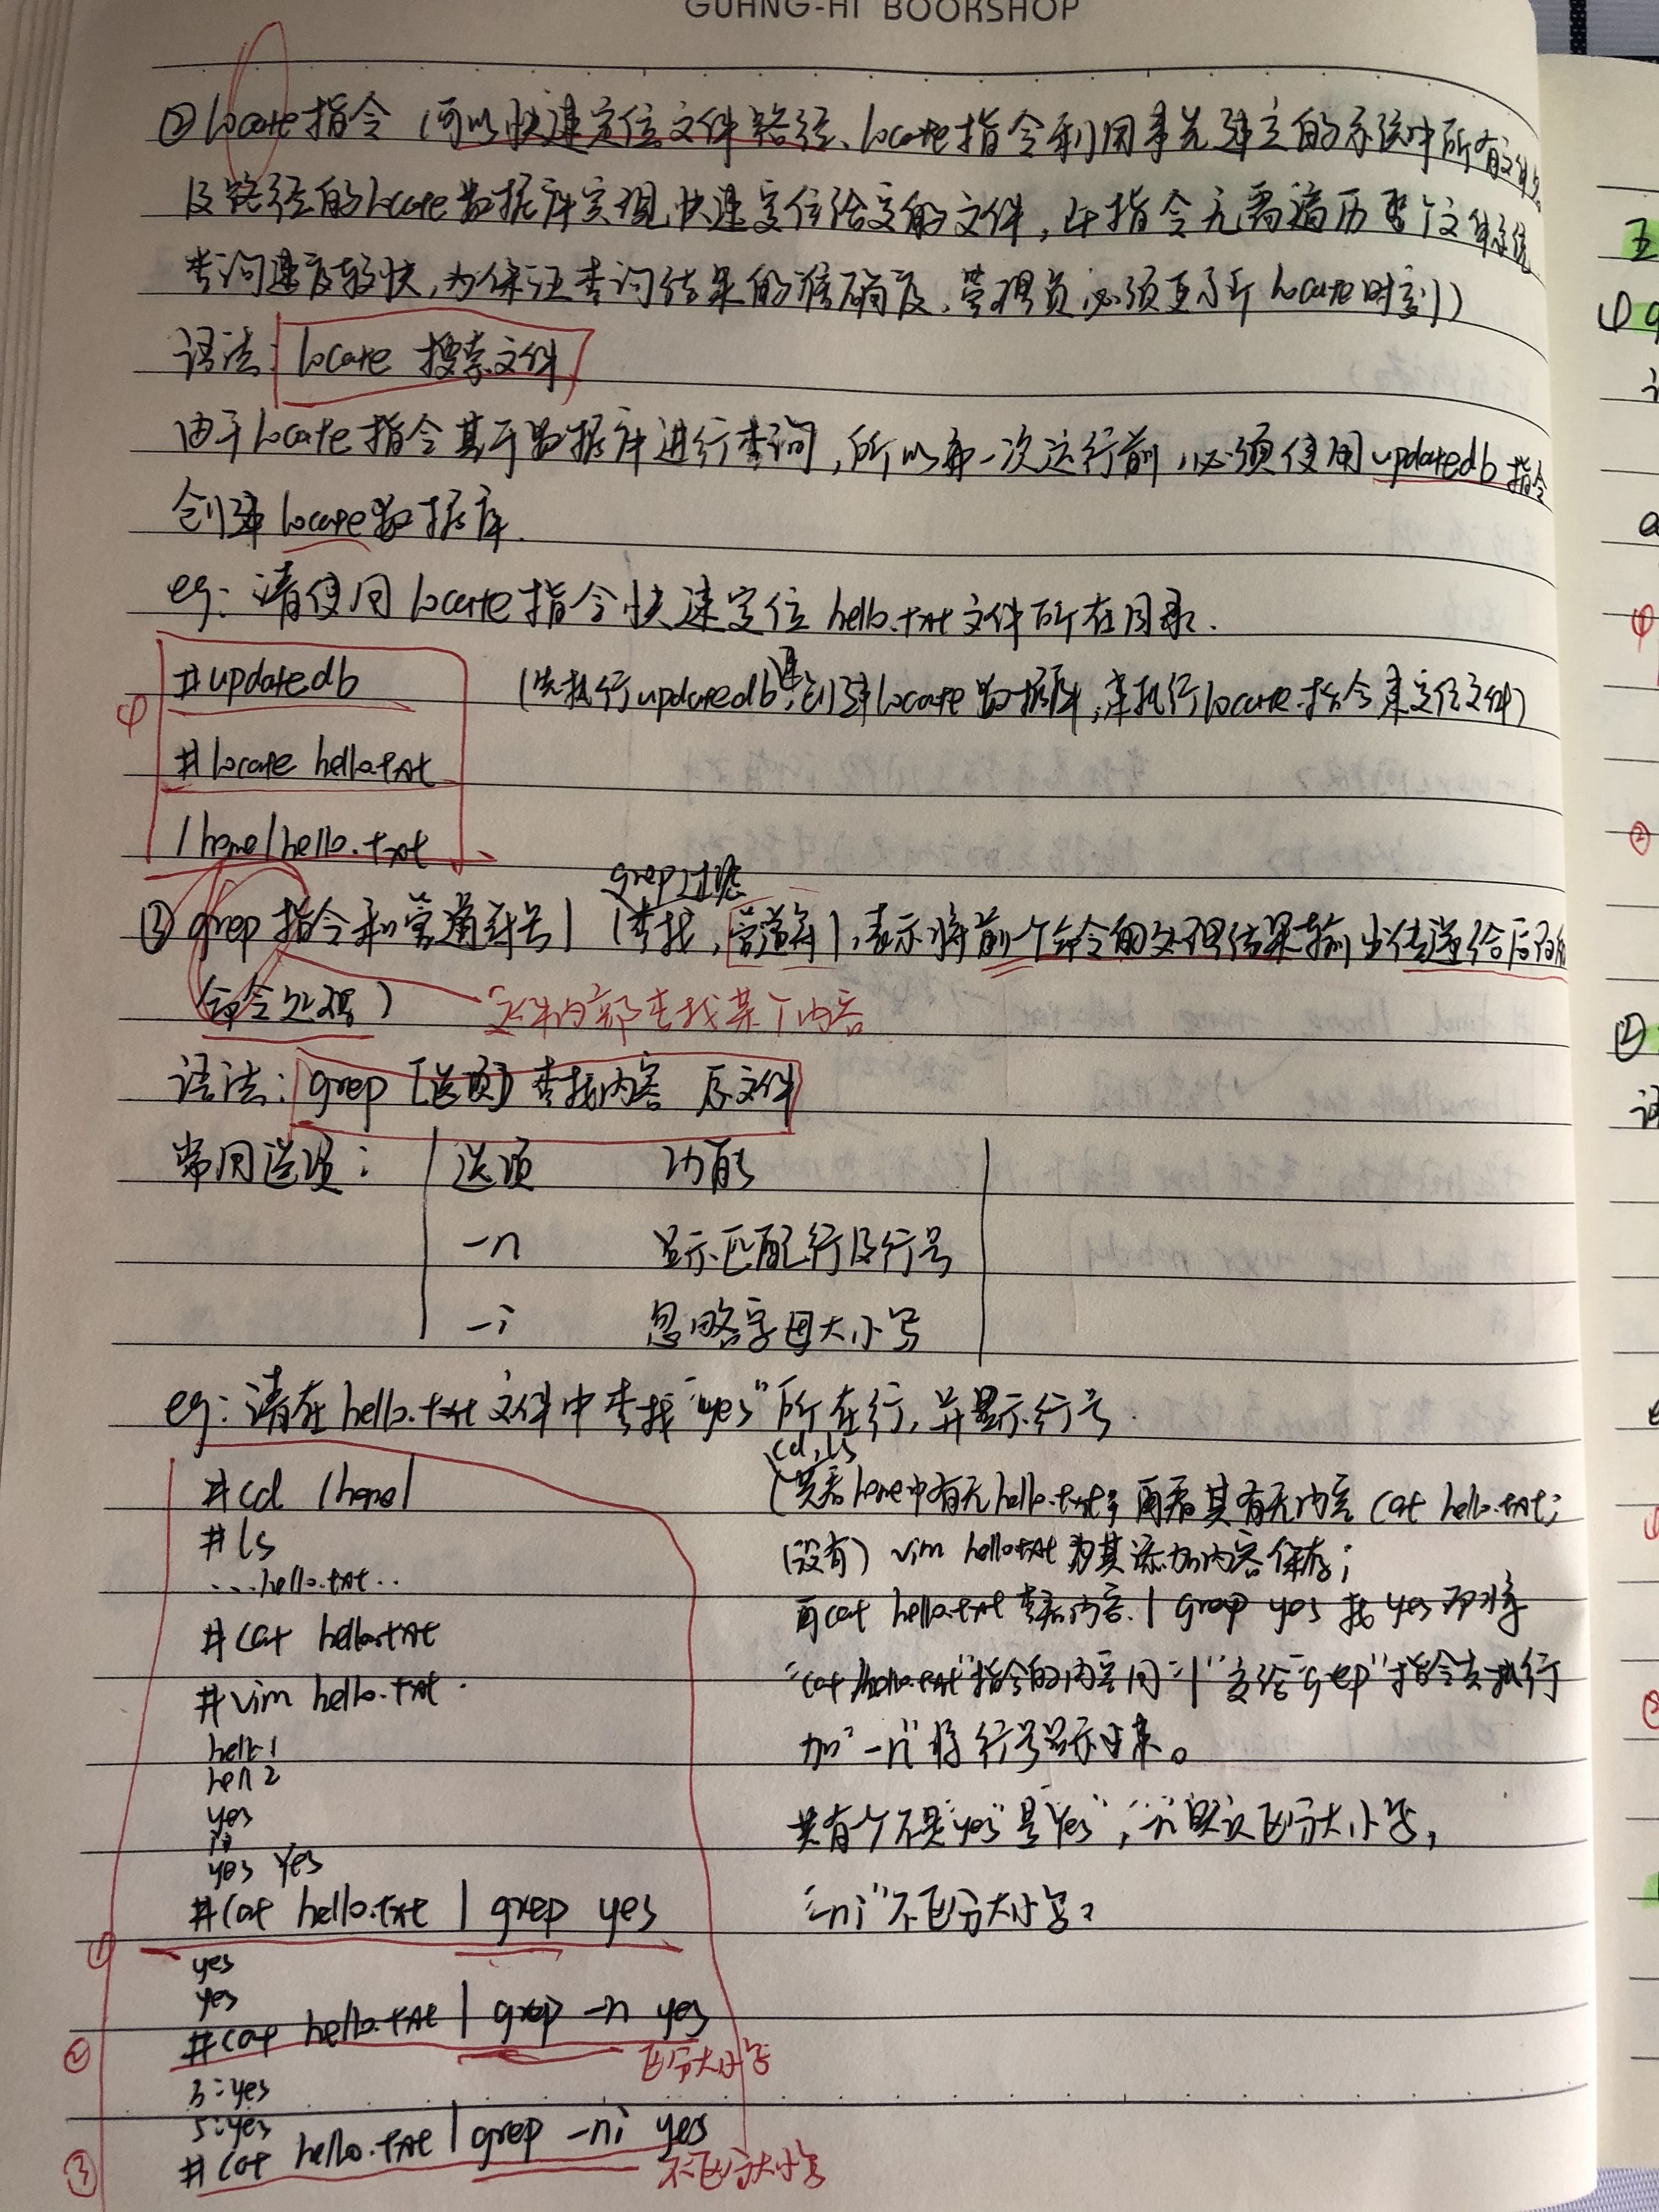 GUANG-HI BOOKSHOP
②locate指令（可以快速定位文件路径、locate指令利用事先建立的系统中所有文件名
及路径的locate数据库实现快速定位给定的文件，此指令无需遍历整个文件系统
查询速度较快，为保证查询结果的准确度，管理员必须更新locate时刻）
语法：locate 搜索文件
由于locate指令基于数据库进行查询，所以第一次运行前，必须使用updatedb指令
创建locate数据库.
eg：请使用locate指令快速定位hello.txt文件所在目录.
①
#updatedb （先执行updatedb 创建locate数据库，来执行locate指令来定位文件）
#locate hello.txt
/home/hello.txt
grep过滤
③grep指令和管道符号| （查找，管道符|，表示将前一个命令的处理结果输出传递给后面的
命令处理） 文件内部查找某个内容
语法：grep [选项] 查找内容 原文件
常用选项： 选项 功能
-n 显示匹配行及行号
-i 忽略字母大小写
eg：请在hello.txt文件中查找"yes"所在行，并显示行号.
cd，ls
#cd /home/ （先看home中有无hello.txt； 再看其有无内容 cat hello.txt；
#ls （没有）vim hello.txt 为其添加内容保存；
...hello.txt.. 再cat hello.txt 查看内容. | grep yes 找yes 即将
#cat hello.txt "cat hello.txt"指令的内容用"|"交给"grep"指令去执行
#vim hello.txt 加"-n"将行号显示出来。
hello1
hello2
yes 共有个不是"yes"是"Yes"，"-n"默认区分大小写，
yes Yes
#cat hello.txt | grep yes "-ni"不区分大小写。
①
yes
yes
② #cat hello.txt | grep -n yes 区分大小写
3:yes
5:yes
③ #cat hello.txt | grep -ni yes 不区分大小写